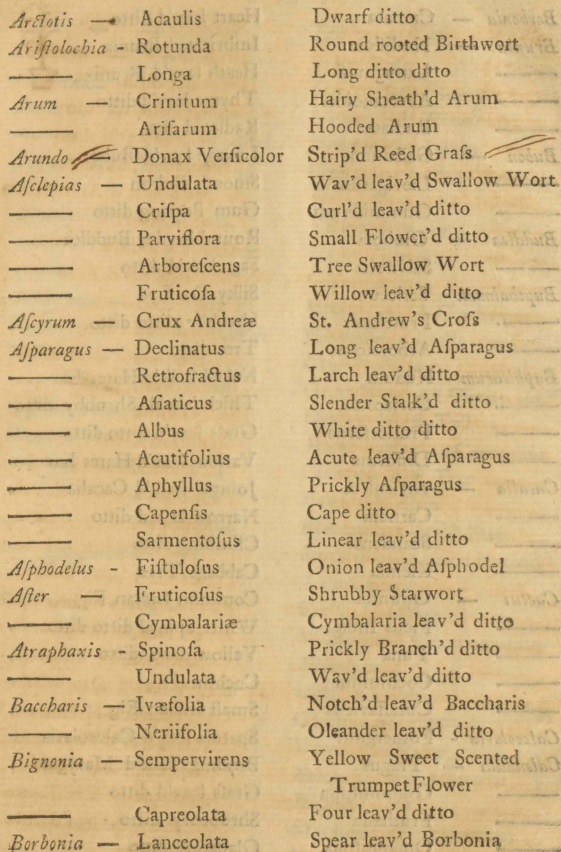 Arctotis — Acaulis Dwarf ditto
Ariſtolochia - Rotunda Round rooted Birthwort
——— Longa Long ditto ditto
Arum — Crinitum Hairy Sheath'd Arum
——— Ariſarum Hooded Arum
Arundo — Donax Verſicolor Strip'd Reed Graſs
Aſclepias — Undulata Wav'd leav'd Swallow Wort
——— Criſpa Curl'd leav'd ditto
——— Parviflora Small Flower'd ditto
——— Arboreſcens Tree Swallow Wort
——— Fruticoſa Willow leav'd ditto
Aſcyrum — Crux Andreæ St. Andrew's Croſs
Aſparagus — Declinatus Long leav'd Aſparagus
——— Retrofractus Larch leav'd ditto
——— Aſiaticus Slender Stalk'd ditto
——— Albus White ditto ditto
——— Acutifolius Acute leav'd Aſparagus
——— Aphyllus Prickly Aſparagus
——— Capenſis Cape ditto
——— Sarmentoſus Linear leav'd ditto
Aſphodelus - Fiſtuloſus Onion leav'd Aſphodel
Aſter — Fruticoſus Shrubby Starwort
——— Cymbalariæ Cymbalaria leav'd ditto
Atraphaxis - Spinoſa Prickly Branch'd ditto
——— Undulata Wav'd leav'd ditto
Baccharis — Ivæfolia Notch'd leav'd Baccharis
——— Neriifolia Oleander leav'd ditto
Bignonia — Sempervirens Yellow Sweet Scented
Trumpet Flower
——— Capreolata Four leav'd ditto
Borbonia — Lanceolata Spear leav'd Borbonia